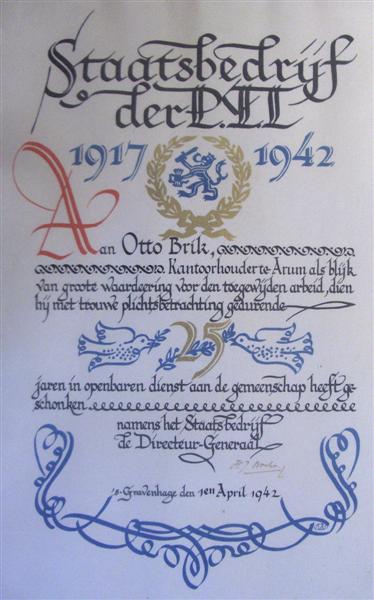 Staatsbedrijf
der P.T.T.
1917 1942
Aan Otto Brik,
Kantoorhouder te Arum als blijk
van groote waardeering voor den toegewijden arbeid, dien
hij met trouwe plichtsbetrachting gedurende
25
jaren in openbaren dienst aan de gemeenschap heeft ge-
schonken
namens het Staatsbedrijf
de Directeur-Generaal
's-Gravenhage den 1en April 1942